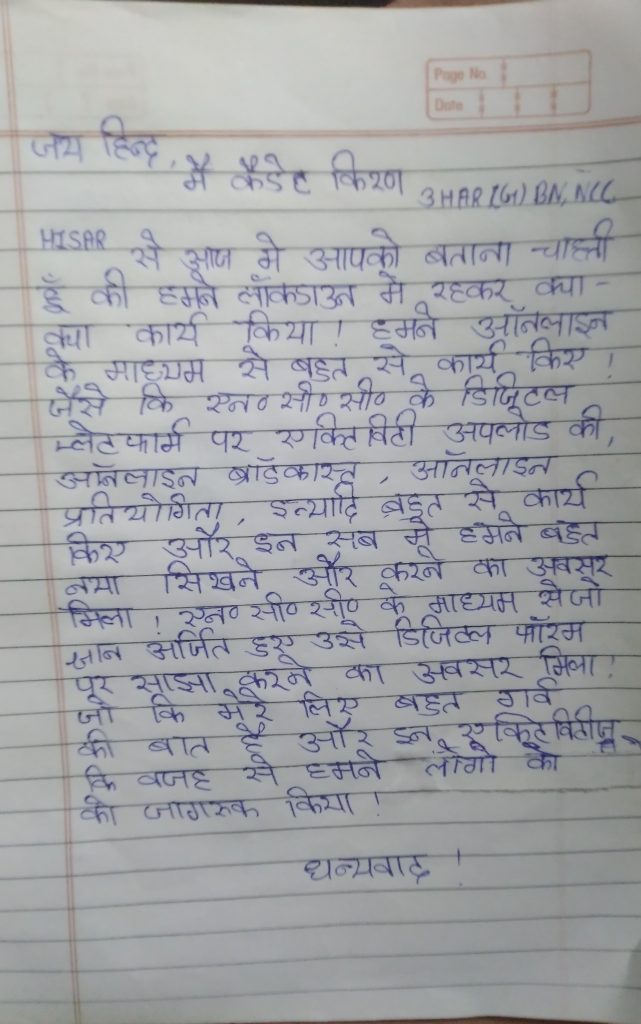 Page No.
Date
जय हिन्द,
मै कैडेट किरण 3HAR(G) BN, NCC
HISAR से आज मे आपको बताना चाहती
हूँ की हमने लॉकडाउन मे रहकर क्या -
क्या कार्य किया! हमने ऑनलाइन
के माध्यम से बहुत से कार्य किए!
जैसे कि एन० सी० सी० के डिजिटल
प्लेटफार्म पर एक्टिविटी अपलोड की,
ऑनलाइन ब्रॉडकास्ट, ऑनलाइन
प्रतियोगिता, इत्यादि बहुत से कार्य
किए और इन सब मे हमने बहुत
नया सिखने और करने का अवसर
मिला! एन० सी० सी० के माध्यम से जो
ज्ञान अर्जित हुए उसे डिजिटल फॉरम
पर साझा करने का अवसर मिला!
जो कि मेरे लिए बहुत गर्व
की बात है और इन एक्टिविटीज
कि वजह से हमने लोगो को
को जागरूक किया!
धन्यवाद!